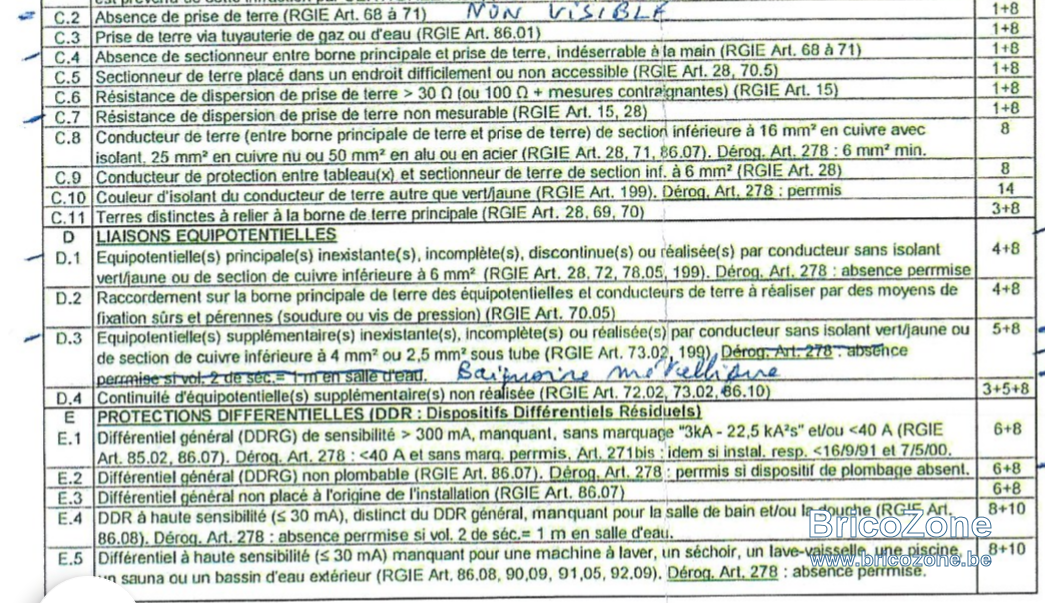 C.2 Absence de prise de terre (RGIE Art. 68 à 71) NON VISIBLE 1+8
C.3 Prise de terre via tuyauterie de gaz ou d'eau (RGIE Art. 86.01) 1+8
C.4 Absence de sectionneur entre borne principale et prise de terre, indéserrable à la main (RGIE Art. 68 à 71) 1+8
C.5 Sectionneur de terre placé dans un endroit difficilement ou non accessible (RGIE Art. 28, 70.5) 1+8
C.6 Résistance de dispersion de prise de terre > 30 Ω (ou 100 Ω + mesures contraignantes) (RGIE Art. 15) 1+8
C.7 Résistance de dispersion de prise de terre non mesurable (RGIE Art. 15, 28) 1+8
C.8 Conducteur de terre (entre borne principale de terre et prise de terre) de section inférieure à 16 mm² en cuivre avec 8
isolant, 25 mm² en cuivre nu ou 50 mm² en alu ou en acier (RGIE Art. 28, 71, 86.07). Dérog. Art. 278 : 6 mm² min.
C.9 Conducteur de protection entre tableau(x) et sectionneur de terre de section inf. à 6 mm² (RGIE Art. 28) 8
C.10 Couleur d'isolant du conducteur de terre autre que vert/jaune (RGIE Art. 199). Dérog. Art. 278 : perrmis 14
C.11 Terres distinctes à relier à la borne de terre principale (RGIE Art. 28, 69, 70) 3+8
D LIAISONS EQUIPOTENTIELLES
D.1 Equipotentielle(s) principale(s) inexistante(s), incomplète(s), discontinue(s) ou réalisée(s) par conducteur sans isolant 4+8
vert/jaune ou de section de cuivre inférieure à 6 mm² (RGIE Art. 28, 72, 78.05, 199). Dérog. Art. 278 : absence perrmise
D.2 Raccordement sur la borne principale de terre des équipotentielles et conducteurs de terre à réaliser par des moyens de 4+8
fixation sûrs et pérennes (soudure ou vis de pression) (RGIE Art. 70.05)
D.3 Equipotentielle(s) supplémentaire(s) inexistante(s), incomplète(s) ou réalisée(s) par conducteur sans isolant vert/jaune ou 5+8
de section de cuivre inférieure à 4 mm² ou 2,5 mm² sous tube (RGIE Art. 73.02, 199). Dérog. Art. 278 : absence
perrmise si vol. 2 de séc.= 1 m en salle d'eau. Baignoire métallique
D.4 Continuité d'équipotentielle(s) supplémentaire(s) non réalisée (RGIE Art. 72.02, 73.02, 86.10) 3+5+8
E PROTECTIONS DIFFERENTIELLES (DDR : Dispositifs Différentiels Résiduels)
E.1 Différentiel général (DDRG) de sensibilité > 300 mA, manquant, sans marquage "3kA - 22,5 kA²s" et/ou <40 A (RGIE 6+8
Art. 85.02, 86.07). Dérog. Art. 278 : <40 A et sans marq. perrmis, Art. 271bis : idem si instal. resp. <16/9/91 et 7/5/00.
E.2 Différentiel général (DDRG) non plombable (RGIE Art. 86.07). Dérog. Art. 278 : permis si dispositif de plombage absent. 6+8
E.3 Différentiel général non placé à l'origine de l'installation (RGIE Art. 86.07) 6+8
E.4 DDR à haute sensibilité (≤ 30 mA), distinct du DDR général, manquant pour la salle de bain et/ou la douche (RGIE Art. 8+10
86.08). Dérog. Art. 278 : absence permise si vol. 2 de séc.= 1 m en salle d'eau.
E.5 Différentiel à haute sensibilité (≤ 30 mA) manquant pour une machine à laver, un séchoir, un lave-vaisselle, une piscine, 8+10
un sauna ou un bassin d'eau extérieur (RGIE Art. 86.08, 90,09, 91,05, 92.09). Dérog. Art. 278 : absence perrmise.
BricoZone
www.bricozone.be